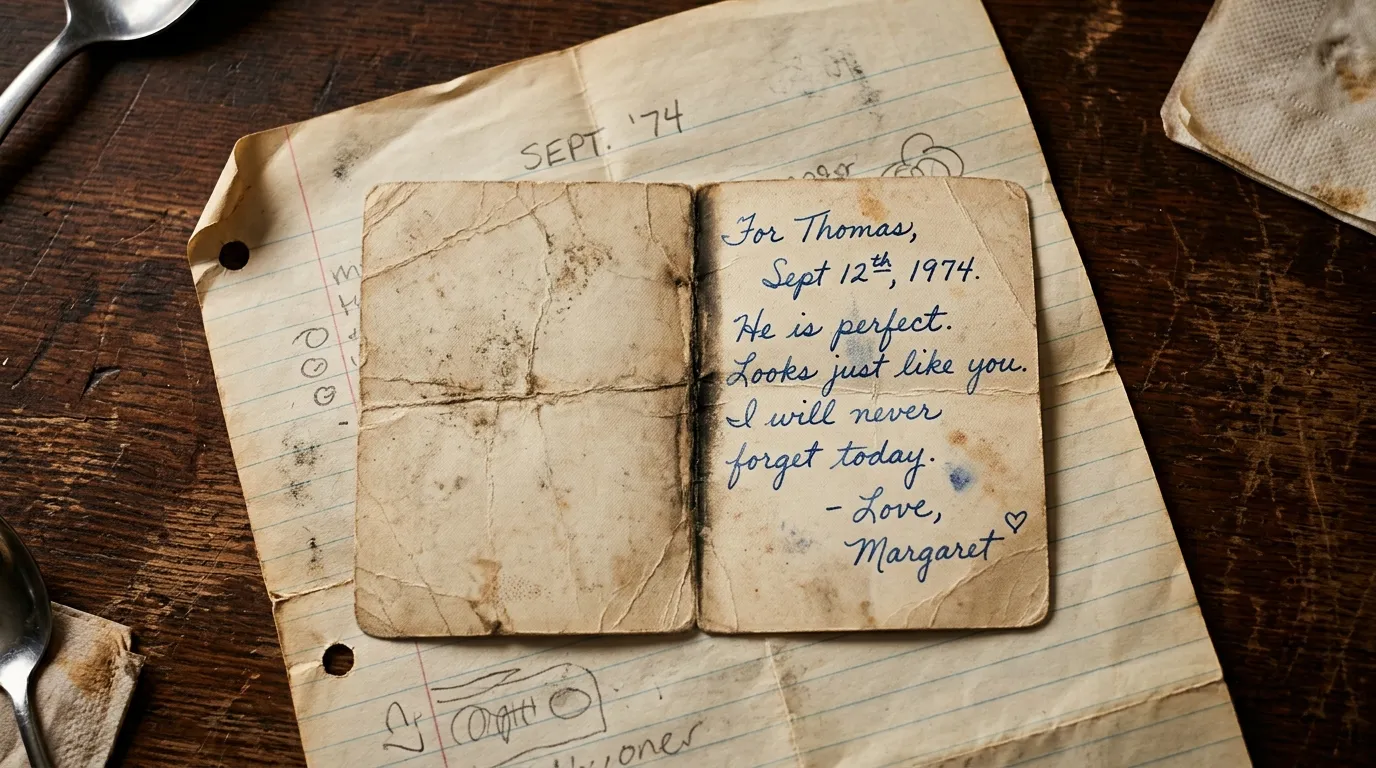 SEPT. '74
For Thomas,
Sept 12th, 1974.
He is perfect.
Looks just like you.
I will never
forget today.
- Love,
Margaret ♡